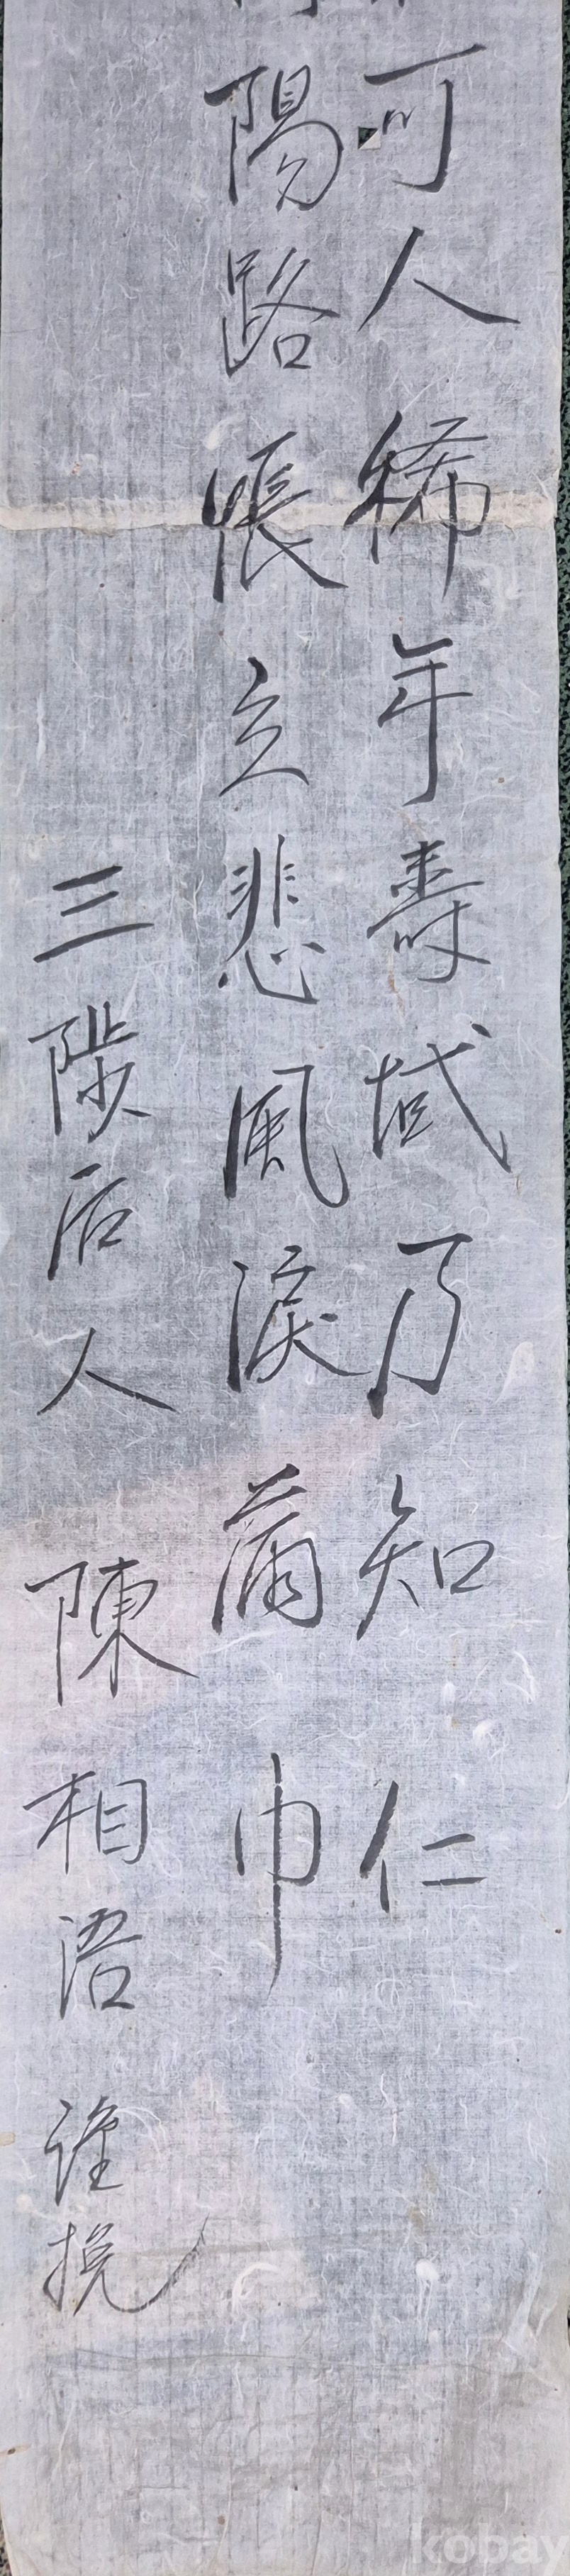 可人稀年壽域乃知仁
陽路悵立悲風淚滿巾
三陟后人 陳相浯 謹挽
kobay